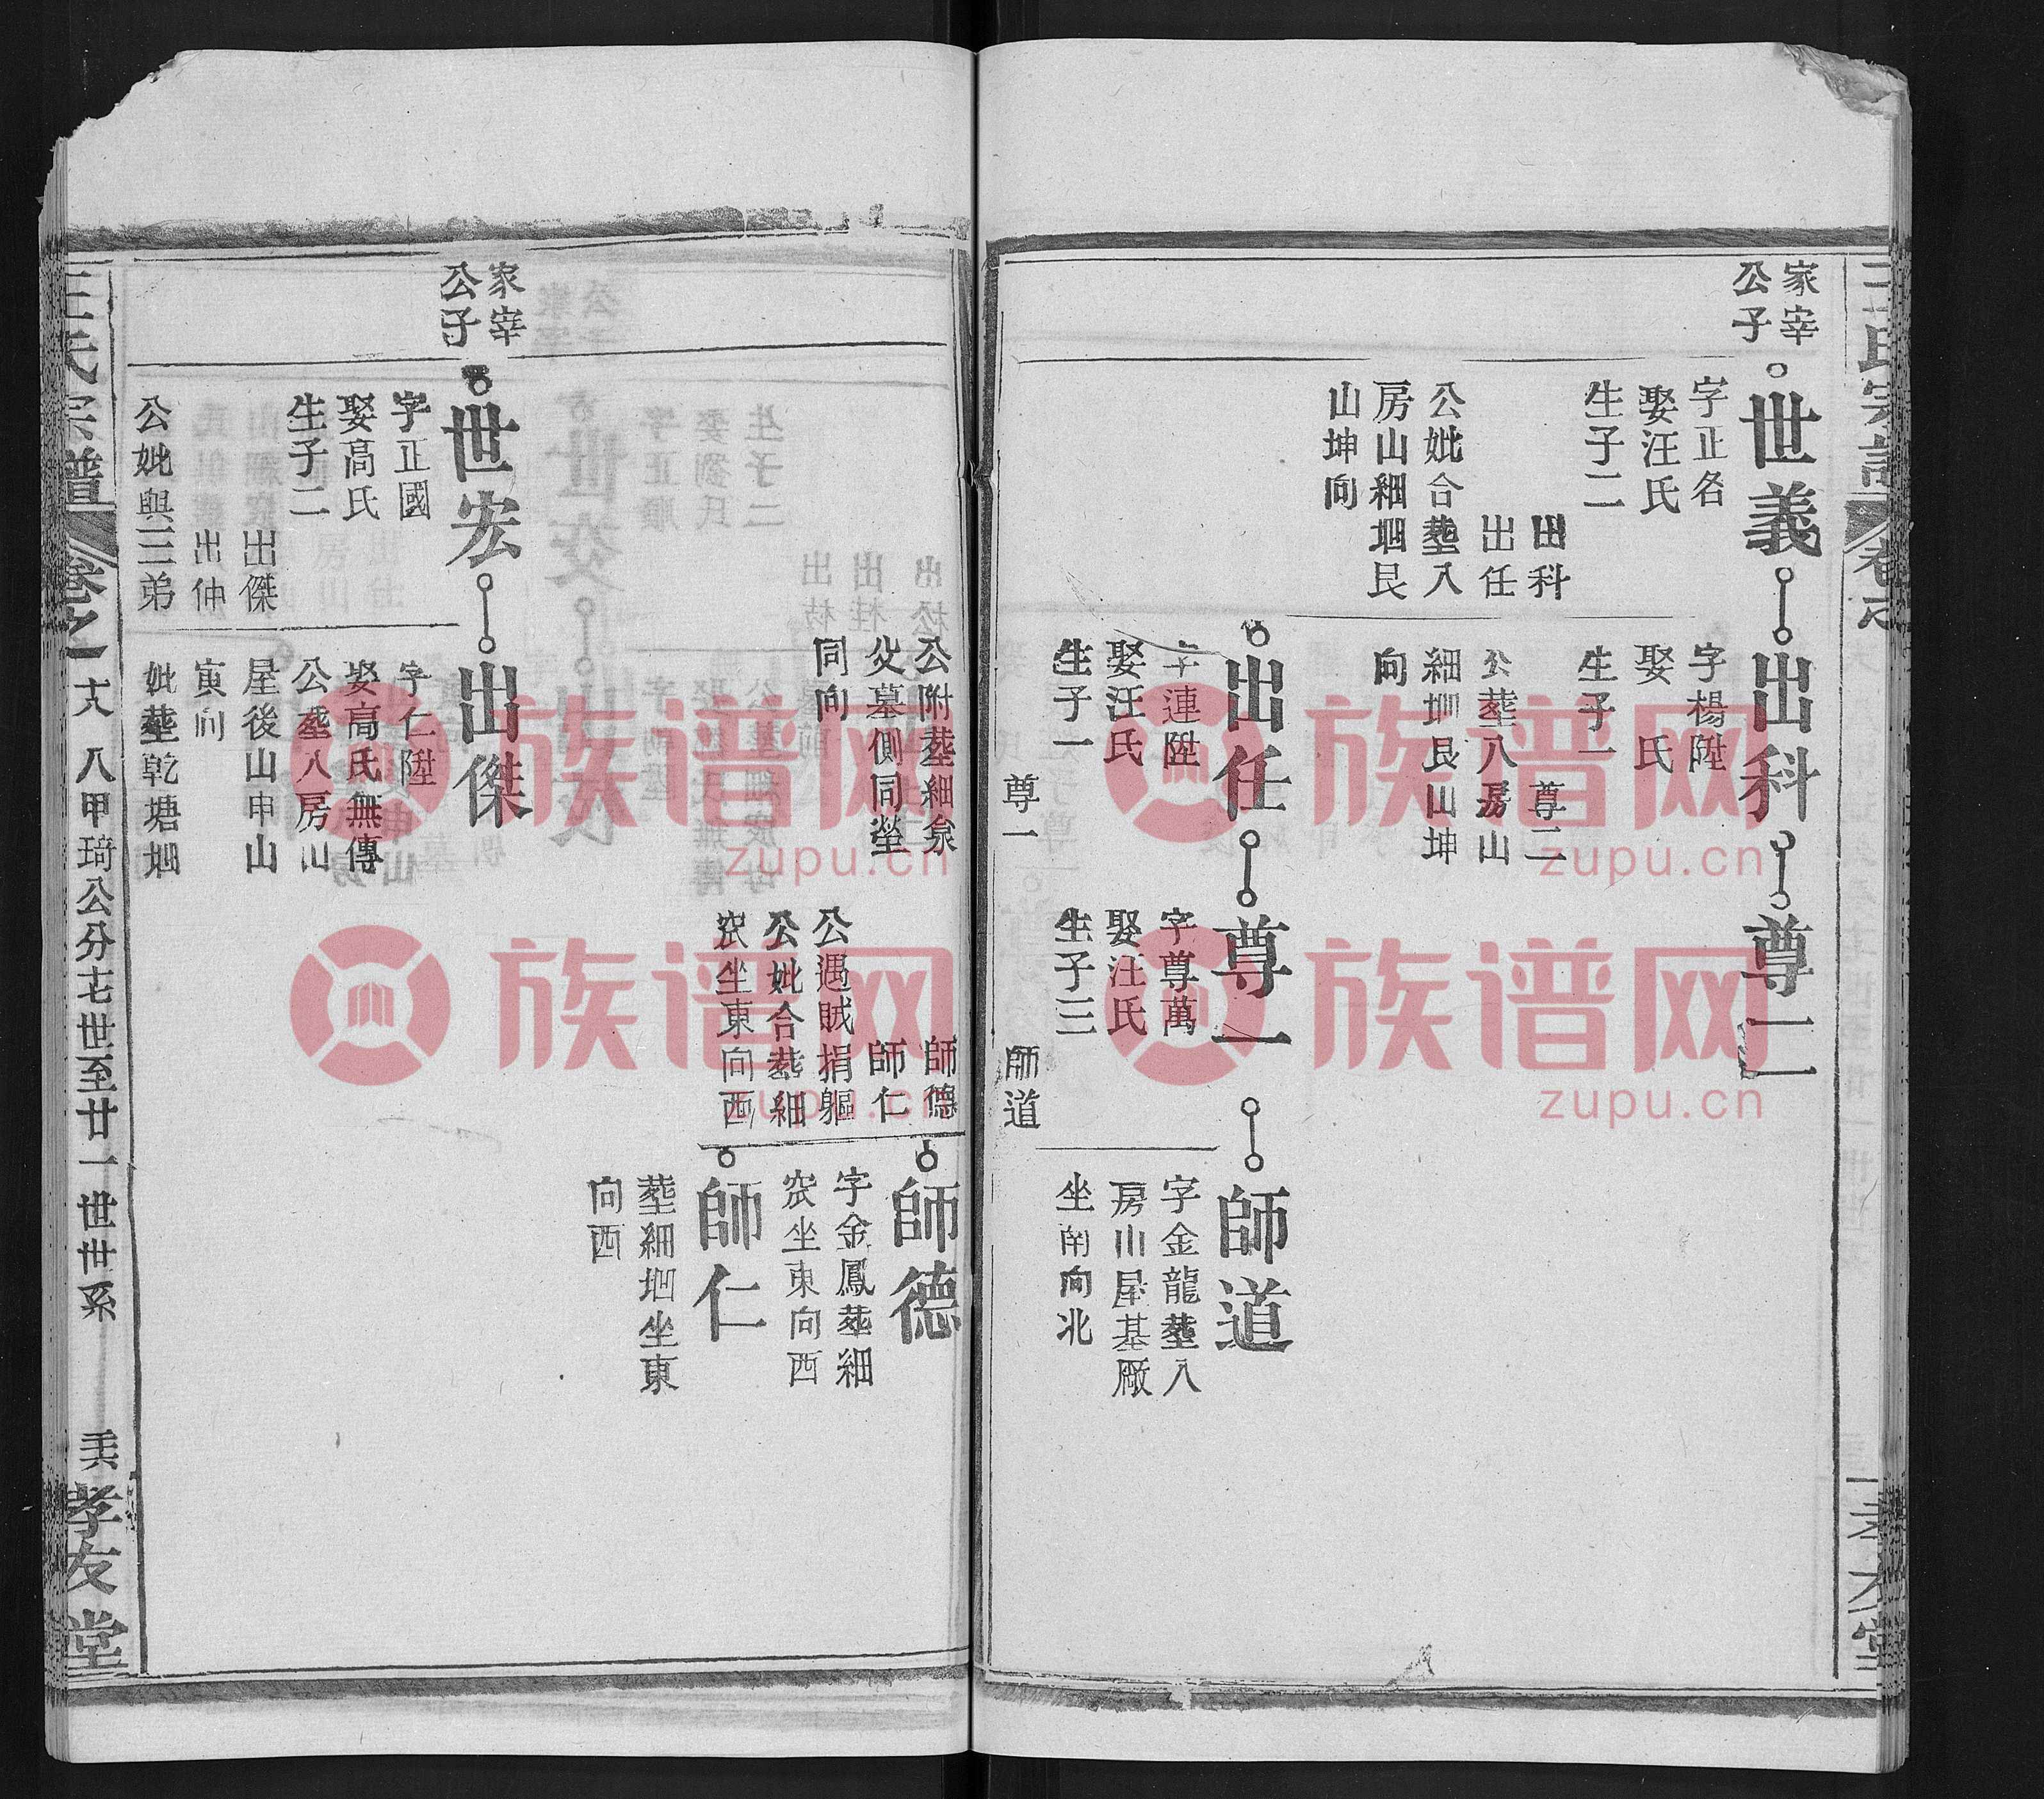 家宰
公子
世義
字正名
娶汪氏
生子二
出科
出任
公妣合塟八
房山細堌艮
山坤向
出科
字楊陞
娶 氏
生子一
尊二
公塟八房山
細堌艮山坤
向
尊二
出任
字連陞
娶汪氏
生子一
尊一
尊一
字尊萬
娶汪氏
生子三
師道
師道
字金龍塟八
房山屋基厰
坐南向北
公附塟細㵋
父墓側同塋
同向
師德
師仁
公遇賊捐軀
公妣合塟細
坐東向西
師德
字金鳳塟細
坐東向西
師仁
塟細堌坐東
向西
家宰
公子
世宏
字正國
娶高氏
生子二
出傑
出仲
公妣與三弟
出傑
字仁陞
娶高氏無傳
公塟八房山
屋後山申山
寅向
妣塟乾塘堌
王氏宗譜
卷之一
八甲琦公分七世至廿一世世系
孝友堂
族谱网
zupu.cn
族谱网
zupu.cn
族谱网
zupu.cn
族谱网
zupu.cn